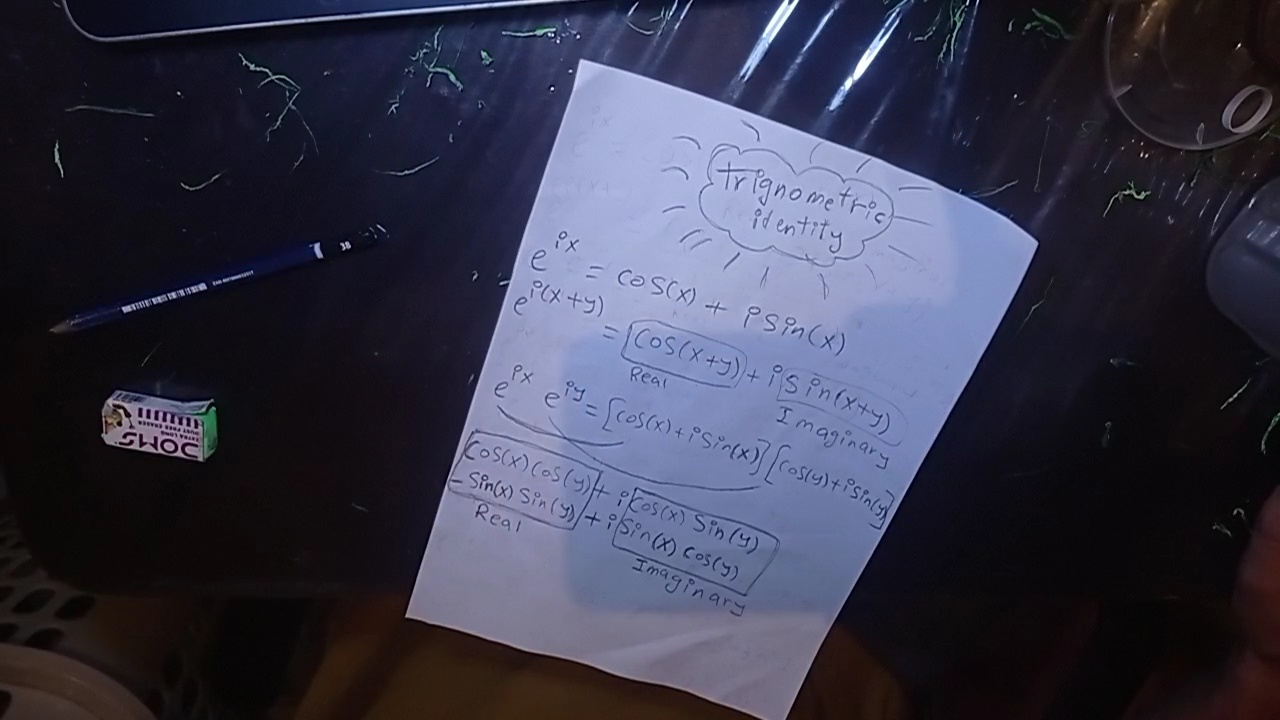 trignometric
identity
e^{ix} = cos(x) + i sin(x)
e^{i(x+y)} = cos(x+y) + i sin(x+y)
Real Imaginary
e^{ix} e^{iy} = [cos(x) + i sin(x)] [cos(y) + i sin(y)]
cos(x) cos(y) + i cos(x) sin(y)
- sin(x) sin(y) + i sin(x) cos(y)
Real Imaginary
3B
DOMS
DUST FREE ERASER
EXTRA LONG